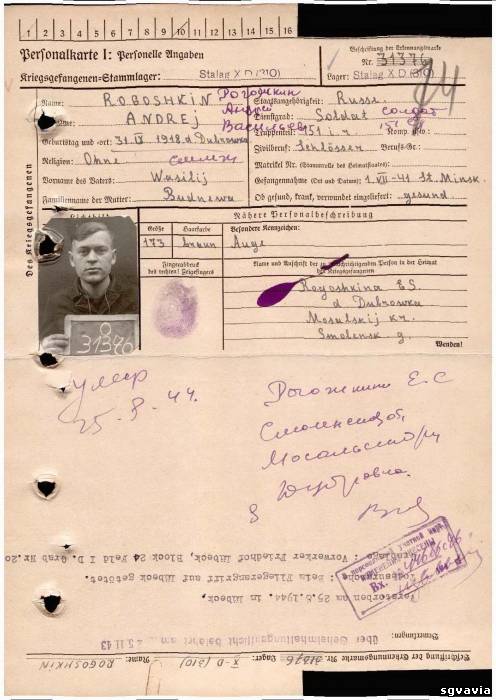 1 2 3 4 5 6 7 8 9 10 11 12 13 14 15 16
Personalkarte I: Personelle Angaben
Kriegsgefangenen-Stammlager: Stalag X D (310)
Beschriftung der Erkennungsmarke
Nr. 31376
Lager: Stalag X D (310)
Des Kriegsgefangenen
Name: ROGOSHKIN Рогожкин
Vorname: ANDREJ Андрей
Васильев
Geburtstag und -ort: 1918, d. Dubrowka
Religion: Ohne
Vorname des Vaters: Wasilij
Familienname der Mutter:
Staatsangehörigkeit: Russe
Dienstgrad: Soldat солдат
Truppenteil: 151 i. r. Komp. usw.:
Zivilberuf: Schlösser Berufs-Gr.:
Matrikel Nr. (Stammrolle des Heimatstaates):
Gefangennahme (Ort und Datum): 1. VII-41 St. Minsk.
Ob gesund, krank, verwundet eingeliefert: gesund.
Lichtbild
Nähere Personalbeschreibung
Größe Haarfarbe Besondere Kennzeichen:
173 braun Auge
Fingerabdruck
des rechten! Zeigefingers
Name und Anschrift der zu benachrichtigenden Person in der Heimat
des Kriegsgefangenen
Rogoshkina E.S.
d. Dubrowka
Mosalskij kr.
Smolensk g.
Wenden!
31376
умер
25.8.44.
Рогожкина Е.С
Смоленская об.
Мосальский р
д Дубровка
Grablage: Vorwerker Friedhof Lübeck, Block 24 Feld I D. Grab Nr. 20.
Todesursache: beim Fliegerangriff auf Lübeck getötet.
Verstorben am 25.8.1944. in Lübeck.
über Geheimhaltungspflicht belehrt am 11 43
Bemerkungen:
Beschriftung der Erkennungsmarke Nr. 31376 Lager: X D (310) Name: ROGOSHKIN
sgvavia